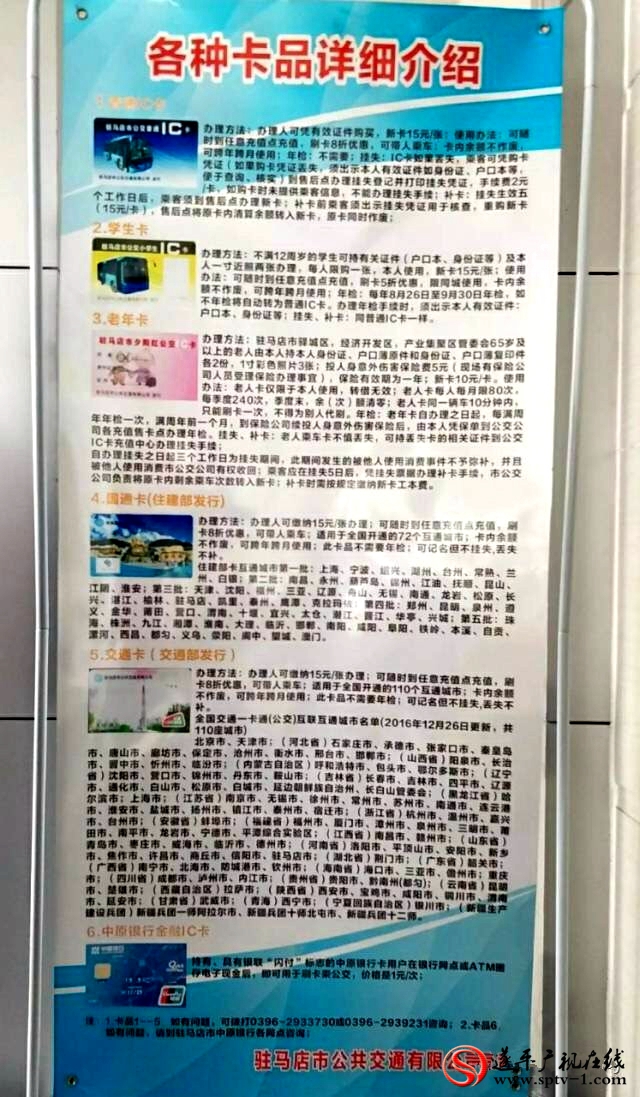 各种卡品详细介绍
1.普通IC卡
驻马店市公交普通IC卡
办理方法：办理人可凭有效证件购买，新卡15元/张；使用办法：可随
时到任意充值点充值，刷卡8折优惠，可带人乘车；卡内余额不作废，
可跨年跨月使用；年检：不需要；挂失：IC卡如果丢失，乘客可凭购卡
凭证（如果购卡凭证丢失，须出示本人有效证件如身份证、户口本等，
便于查询、核实）到售后点办理挂失登记并打印挂失凭证，手续费2元
/卡，如购卡时未提供乘客信息，不能办理挂失手续；补卡：挂失生效五
个工作日后，乘客须到售后点办理新卡；补卡前乘客须出示挂失凭证用于核查，重购新卡
（15元/卡），售后点将原卡内清算余额转入新卡，原卡同时作废；
2.学生卡
驻马店市公交小学生IC卡
办理方法：不满12周岁的学生可持有关证件（户口本、身份证等）及本
人一寸近照两张办理，每人限购一张，本人使用，新卡15元/张；使用
办法：可随时到任意充值点充值，刷卡5折优惠，限同城使用，卡内余
额不作废，可跨年跨月使用；年检：每年8月26日至9月30日年检，如
不年检将自动转为普通IC卡。办理年检手续时，须出示本人有效证件：
户口本、身份证等；挂失、补卡：同普通IC卡一样。
3.老年卡
驻马店市夕阳红公交IC卡
办理方法：驻马店市驿城区，经济开发区，产业集聚区管委会65岁及
以上的老人由本人持本人身份证、户口簿原件和身份证、户口簿复印件
各2份，1寸彩色照片3张；投人身意外伤害保险费5元（现场有保险公
司人员受理保险办理事宜），保险有效期为一年；新卡10元/卡。使用
办法：老人卡仅限于本人使用，转借无效；老人卡每人每月限80次，
每季度240次，季度末，余（次）额清零；老人卡同一辆车10分钟内，
只能刷卡一次，不得为别人代刷。年检：老年卡自办理之日起，每满周
年年检一次，满周年前一个月，到保险公司续投人身意外伤害保险后，由本人凭保单到公交公
司各充值售卡点办理年检。挂失、补卡：老人乘车卡不慎丢失，可持丢失卡的相关证件到公交
IC卡充值中心办理挂失手续；
自办理挂失之日起三个工作日为挂失期间，此期间发生的被他人使用消费事件不予弥补，并且
被他人使用消费市公交公司有权收回；乘客应在挂失5日后，凭挂失票据办理补卡手续，市公交
公司负责将原卡内剩余乘车次数转入新卡；补卡时需按规定缴纳新卡工本费。
4.国通卡(住建部发行)
办理方法：办理人可缴纳15元/张办理；可随时到任意充值点充值，刷
卡8折优惠，可带人乘车；适用于全国开通的72个互通城市；卡内余额
不作废，可跨年跨月使用；此卡品不需要年检；可记名但不挂失,丢失
不补。
住建部卡互通城市第一批：上海、宁波、绍兴、湖州、台州、常熟、兰
州、白银；第二批：南昌、永州、葫芦岛、锦州、江油、抚顺、昆山、
江阴、淮安；第三批：天津、沈阳、福州、三亚、辽源、舟山、无锡、南通、龙岩、松原、长
兴、湛江、榆林、驻马店、凯里、泰州、鹰潭、克拉玛依；第四批：郑州、昆明、泉州、遵
义、金华、莆田、营口、渭南、十堰、宜兴、太仓、潜江、晋江、华亭、兴城；第五批：珠
海、株洲、九江、湘潭、淮南、大理、临沂、邯郸、南阳、咸阳、阜阳、铁岭、本溪、自贡、
漯河、西昌、都匀、义乌、荥阳、阆中、望城、澳门。
5.交通卡（交通部发行）
办理方法：办理人可缴纳15元/张办理；可随时到任意充值点充值，刷
卡8折优惠，可带人乘车；适用于全国开通的110个互通城市；卡内余额
不作废，可跨年跨月使用；此卡品不需要年检；可记名但不挂失,丢失不
补。
全国交通一卡通(公交)互联互通城市名单(2016年12月26日更新，共
110座城市)
北京市、天津市；（河北省）石家庄市、承德市、张家口市、秦皇岛
市、唐山市、廊坊市、保定市、沧州市、衡水市、邢台市、邯郸市；（山西省）阳泉市、长治
市、晋中市、忻州市、临汾市；（内蒙古自治区）呼和浩特市、包头市、鄂尔多斯市；（辽宁
省）沈阳市、营口市、锦州市、丹东市、鞍山市；（吉林省）长春市、吉林市、四平市、辽源
市、通化市、白山市、松原市、白城市、延边朝鲜族自治州、长白山管委会；（黑龙江省）哈
尔滨市；上海市；（江苏省）南京市、无锡市、徐州市、常州市、苏州市、南通市、连云港
市、淮安市、盐城市、扬州市、镇江市、泰州市、宿迁市；（浙江省）杭州市、温州市、嘉兴
市、台州市；（安徽省）蚌埠市；（福建省）福州市、厦门市、漳州市、泉州市、三明市、莆
田市、南平市、龙岩市、宁德市、平潭综合实验区；（江西省）南昌市、赣州市；（山东省）
青岛市、枣庄市、威海市、临沂市、德州市；（河南省）洛阳市、平顶山市、安阳市、新乡
市、焦作市、许昌市、商丘市、信阳市、驻马店市；（湖北省）荆门市；（广东省）韶关市；
（广西省）南宁市、北海市、防城港市、钦州市；（海南省）海口市、三亚市、儋州市；重庆
市；（四川省）成都市、泸州市、内江市；（贵州省）贵阳市、黔南州(都匀)；（云南省）昆明
市、楚雄市；（西藏自治区）拉萨市；（陕西省）西安市、宝鸡市、咸阳市、铜川市、渭南
市、延安市；（甘肃省）武威市；（青海）西宁市；（宁夏回族自治区）银川市；（新疆生产
建设兵团）新疆兵团一师阿拉尔市、新疆兵团十师北屯市、新疆兵团十二师。
6.中原银行金融IC卡
中原银行
持有、具有银联“闪付”标志的中原银行卡用户在银行网点或ATM圈
存电子现金后，即可用于刷卡乘公交，价格是1元/次；
注：1.卡品1--5，如有问题，可拨打0396-2933730或0396-2939231咨询；2.卡品6，
如有问题，请到驻马店市中原银行各网点咨询；
驻马店市公共交通有限公司
遂平广视在线
www.sptv-1.com